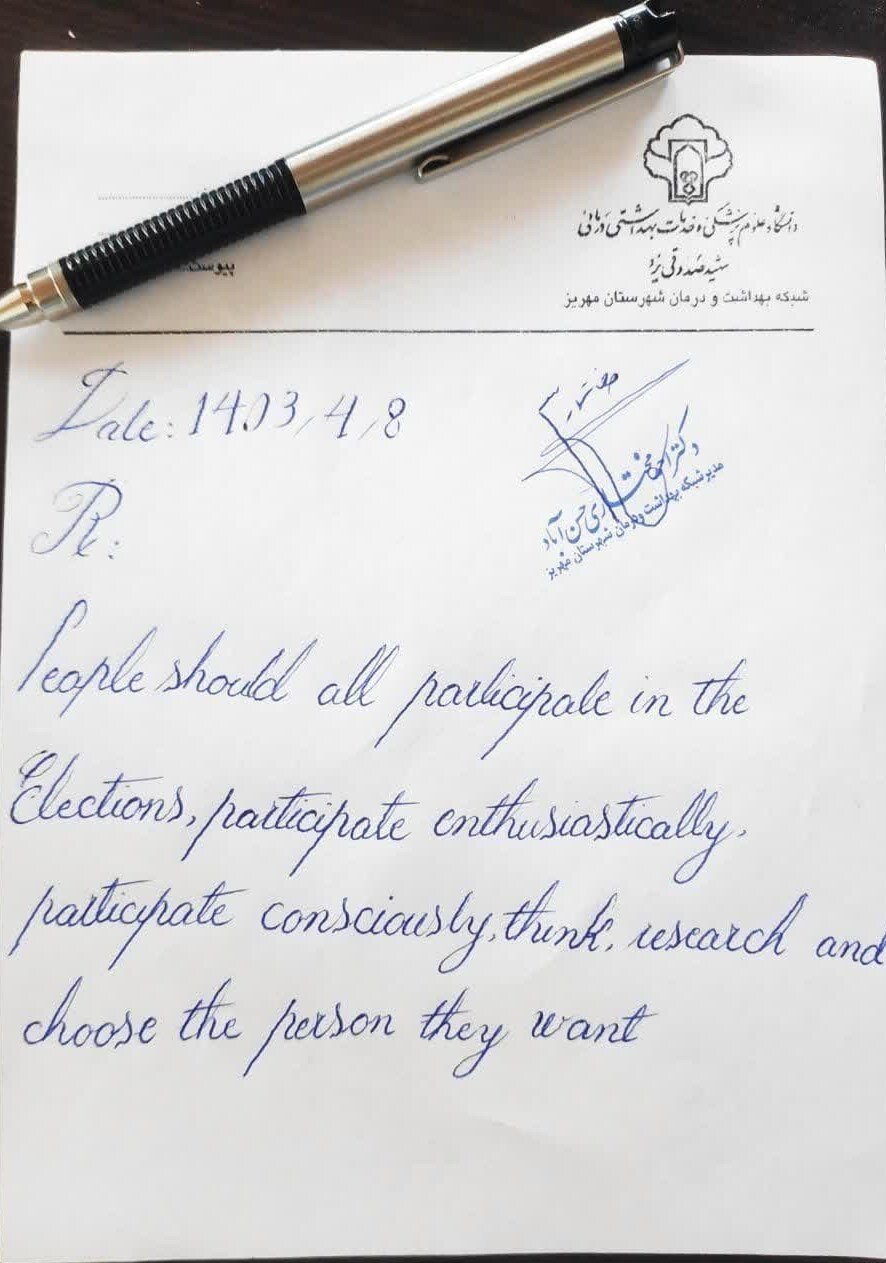 دانشگاه علوم پزشکی و خدمات بهداشتی درمانی
شهید صدوقی یزد
شبکه بهداشت و درمان شهرستان مهریز
پیوست
Date: 1403/4/8
R:
People should all participate in the
Elections, participate enthusiastically,
participate consciously, think, research and
choose the person they want
دکتر مختاری حسن آباد
مدیر شبکه بهداشت و درمان شهرستان مهریز